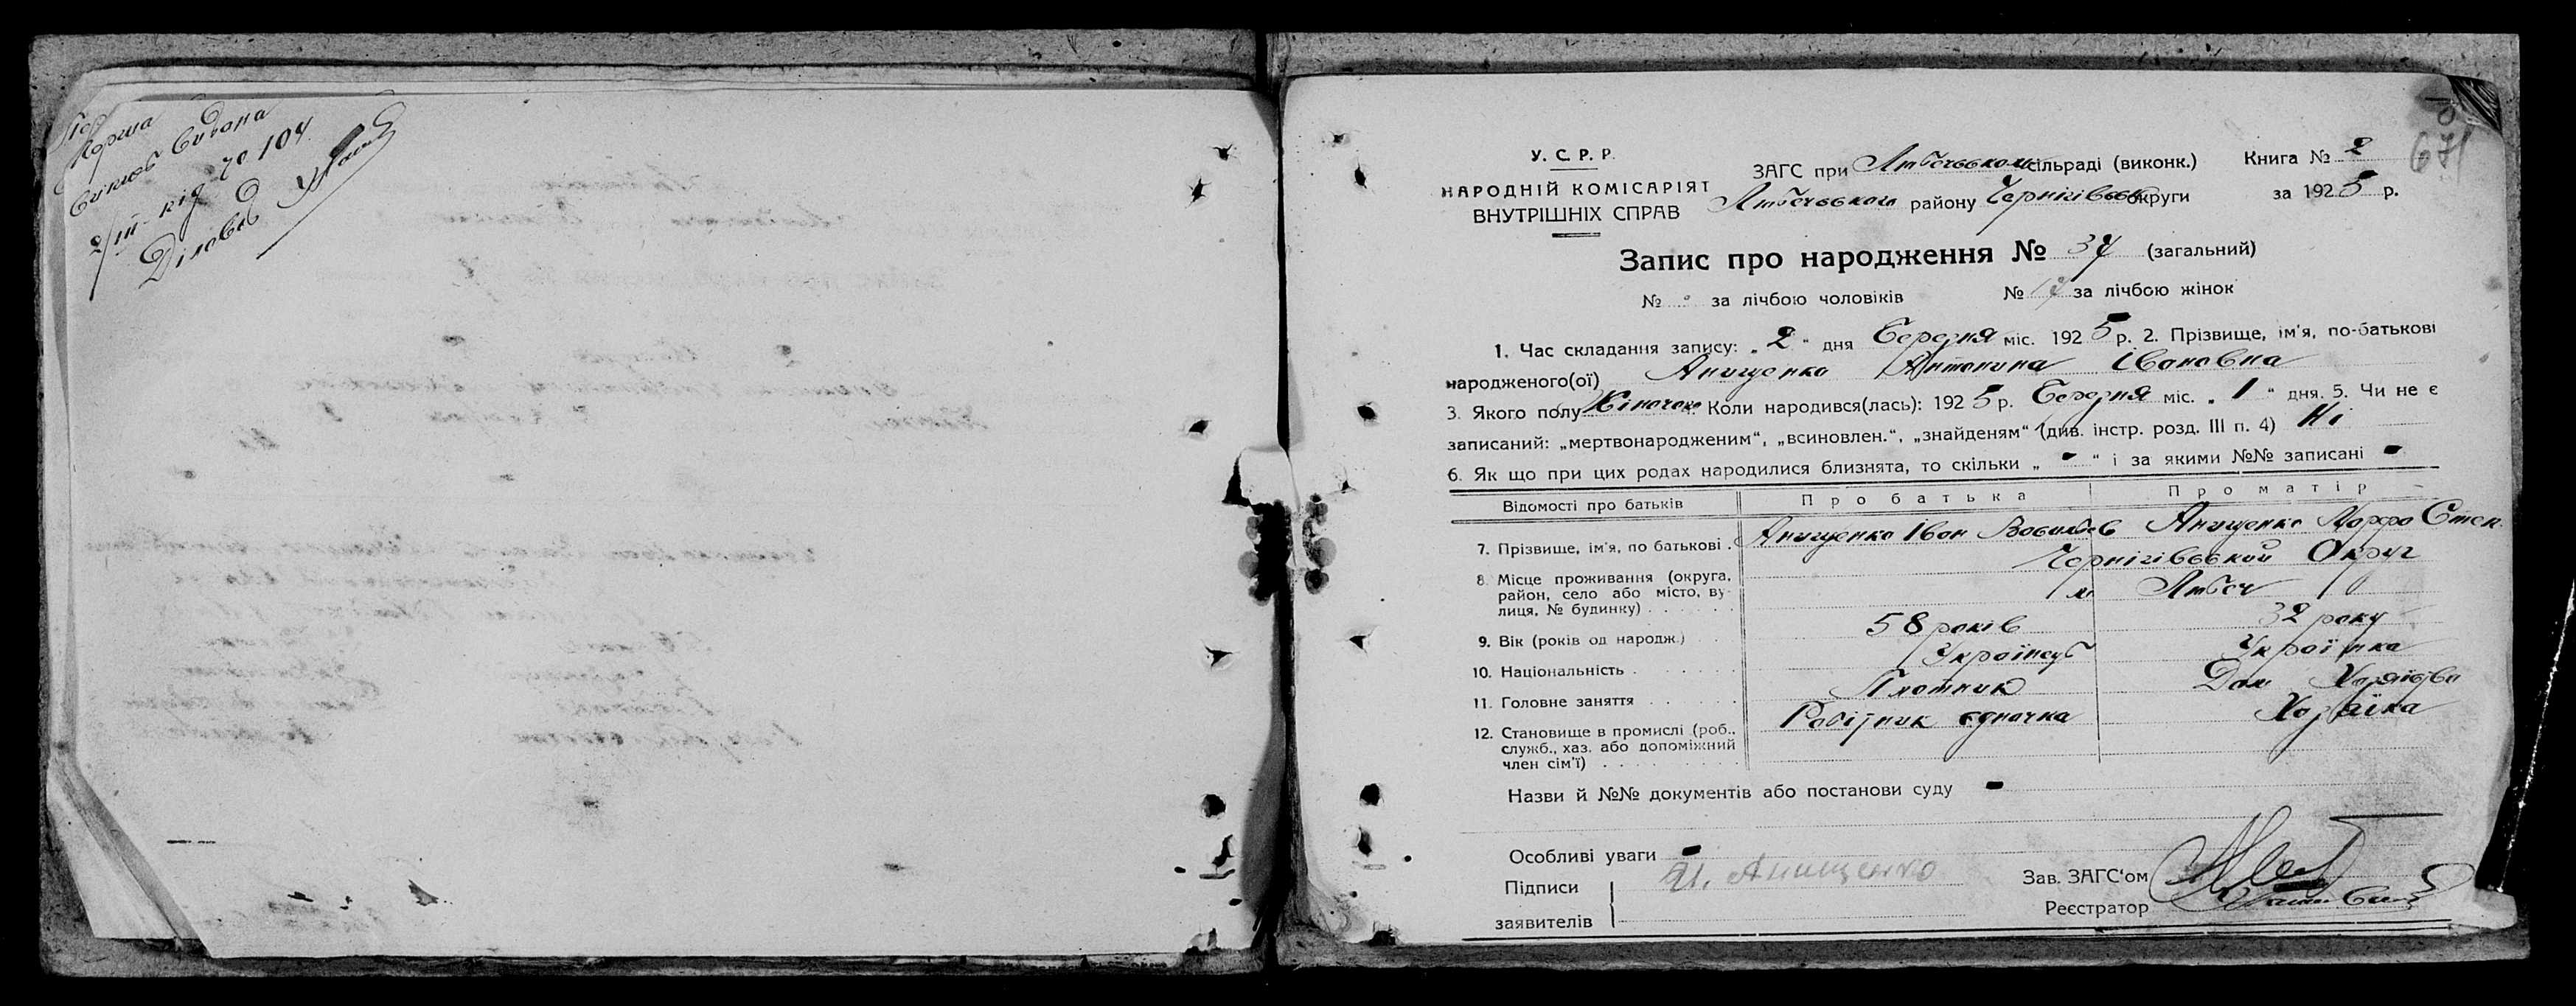 Форма
2/III- під № 104
Діловод
67
У. С. Р. Р.
НАРОДНІЙ КОМІСАРІЯТ
ВНУТРІШНІХ СПРАВ
ЗАГС при Любечськом сільраді (виконк.) Книга № 2
Любечського району Чернігівськ округи за 1925 р.
Запис про народження № 37 (загальний)
№ за лічбою чоловіків № 17 за лічбою жінок
1. Час складання запису: „2“ дня Березня міс. 1925 р. 2. Прізвище, ім'я, по-батькові
народженого(ої) Анищенко Антонина Івановна
3. Якого полу Жіночого Коли народився(лась): 1925 р. Березня міс. „1“ дня. 5. Чи не є
записаний: „мертвонародженим“, „всиновлен.“, „знайденям“ (див. інстр. розд. III п. 4) Ні
6. Як що при цих родах народилися близнята, то скільки „-“ і за якими №№ записані -
Відомості про батьків Про батька Про матір
7. Прізвище, ім'я, по батькові . Анищенко Іван Васильев Анищенко Марфа Степ.
8. Місце проживання (округа, район, село або місто, ву-
лиця, № будинку) . . . . . .
Чернігівськой Округ
м Любеч
9. Вік (років од народж.) . . 58 років 32 року
10. Національність . Українець Українка
11. Головне заняття . . . . . . Плотник Дом Хозяйство
12. Становище в промислі (роб., Робітник одиночка Хозяйка
служб., хаз. або допоміжний
член сім'ї) . . . . . . . . .
Назви й №№ документів або постанови суду -
Особливі уваги -
Підписи И. Анищенко Зав. ЗАГС'ом
заявителів Реєстратор